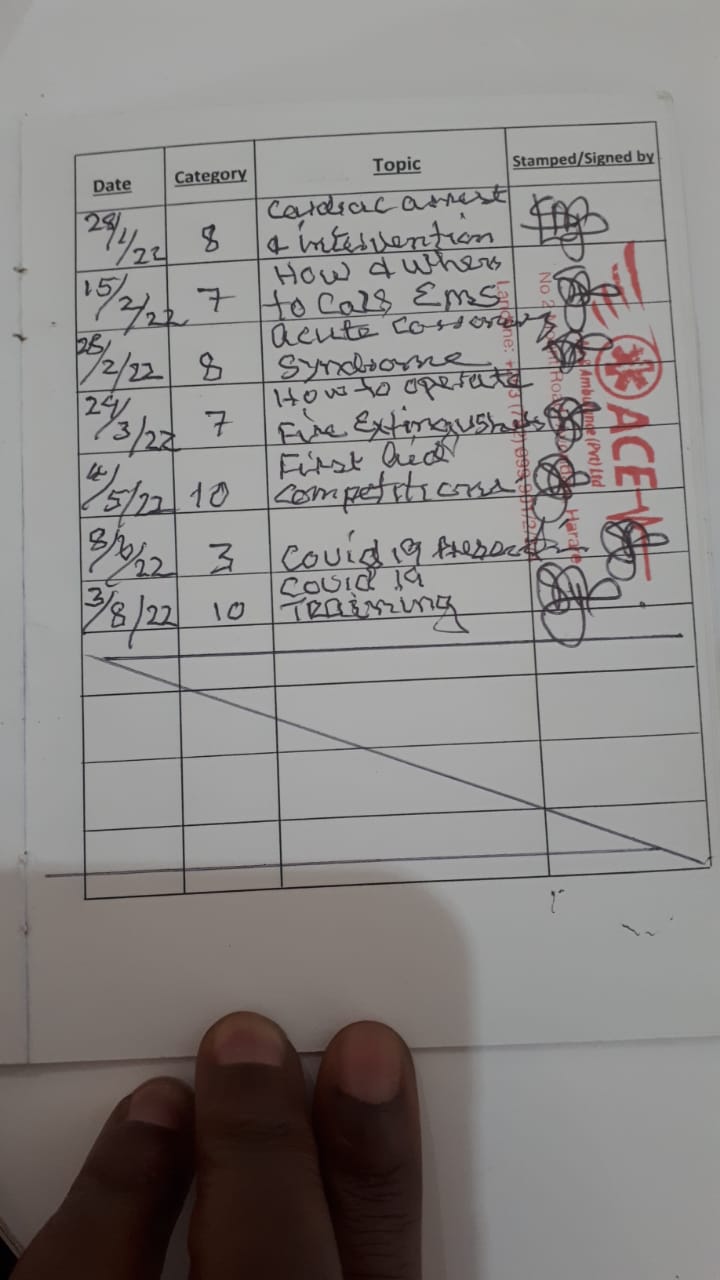 Date Category Topic Stamped/Signed by
28/1/22 8 Cardiac arrest
& intervention
15/2/22 7 How & When
to Call EMS
28/2/22 8 acute coronary
Syndrome
29/3/22 7 How to operate
Fire Extinguishers
4/5/22 10 First Aid
Competitions
8/6/22 3 Covid 19
3/8/22 10 Covid 19
TRAINING
ACE
Ambulance (Pvt) Ltd
No 2 Road Harare
Landline: